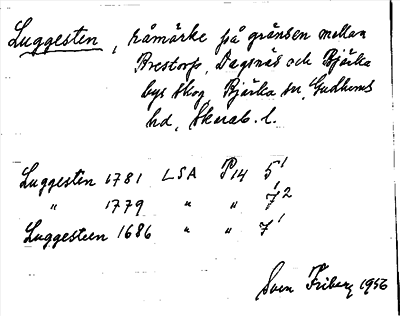 Luggesten, råmärke på gränsen mellan
Brestorp, Dagsnäs och Bjärka
bys skog Bjärka sn, Gudhems
hd, Skarab. l.
Luggesten 1781 LSA P14 5¹
" 1779 " " 7²
Luggesteen 1686 " " 7¹
Sven Friberg 1956